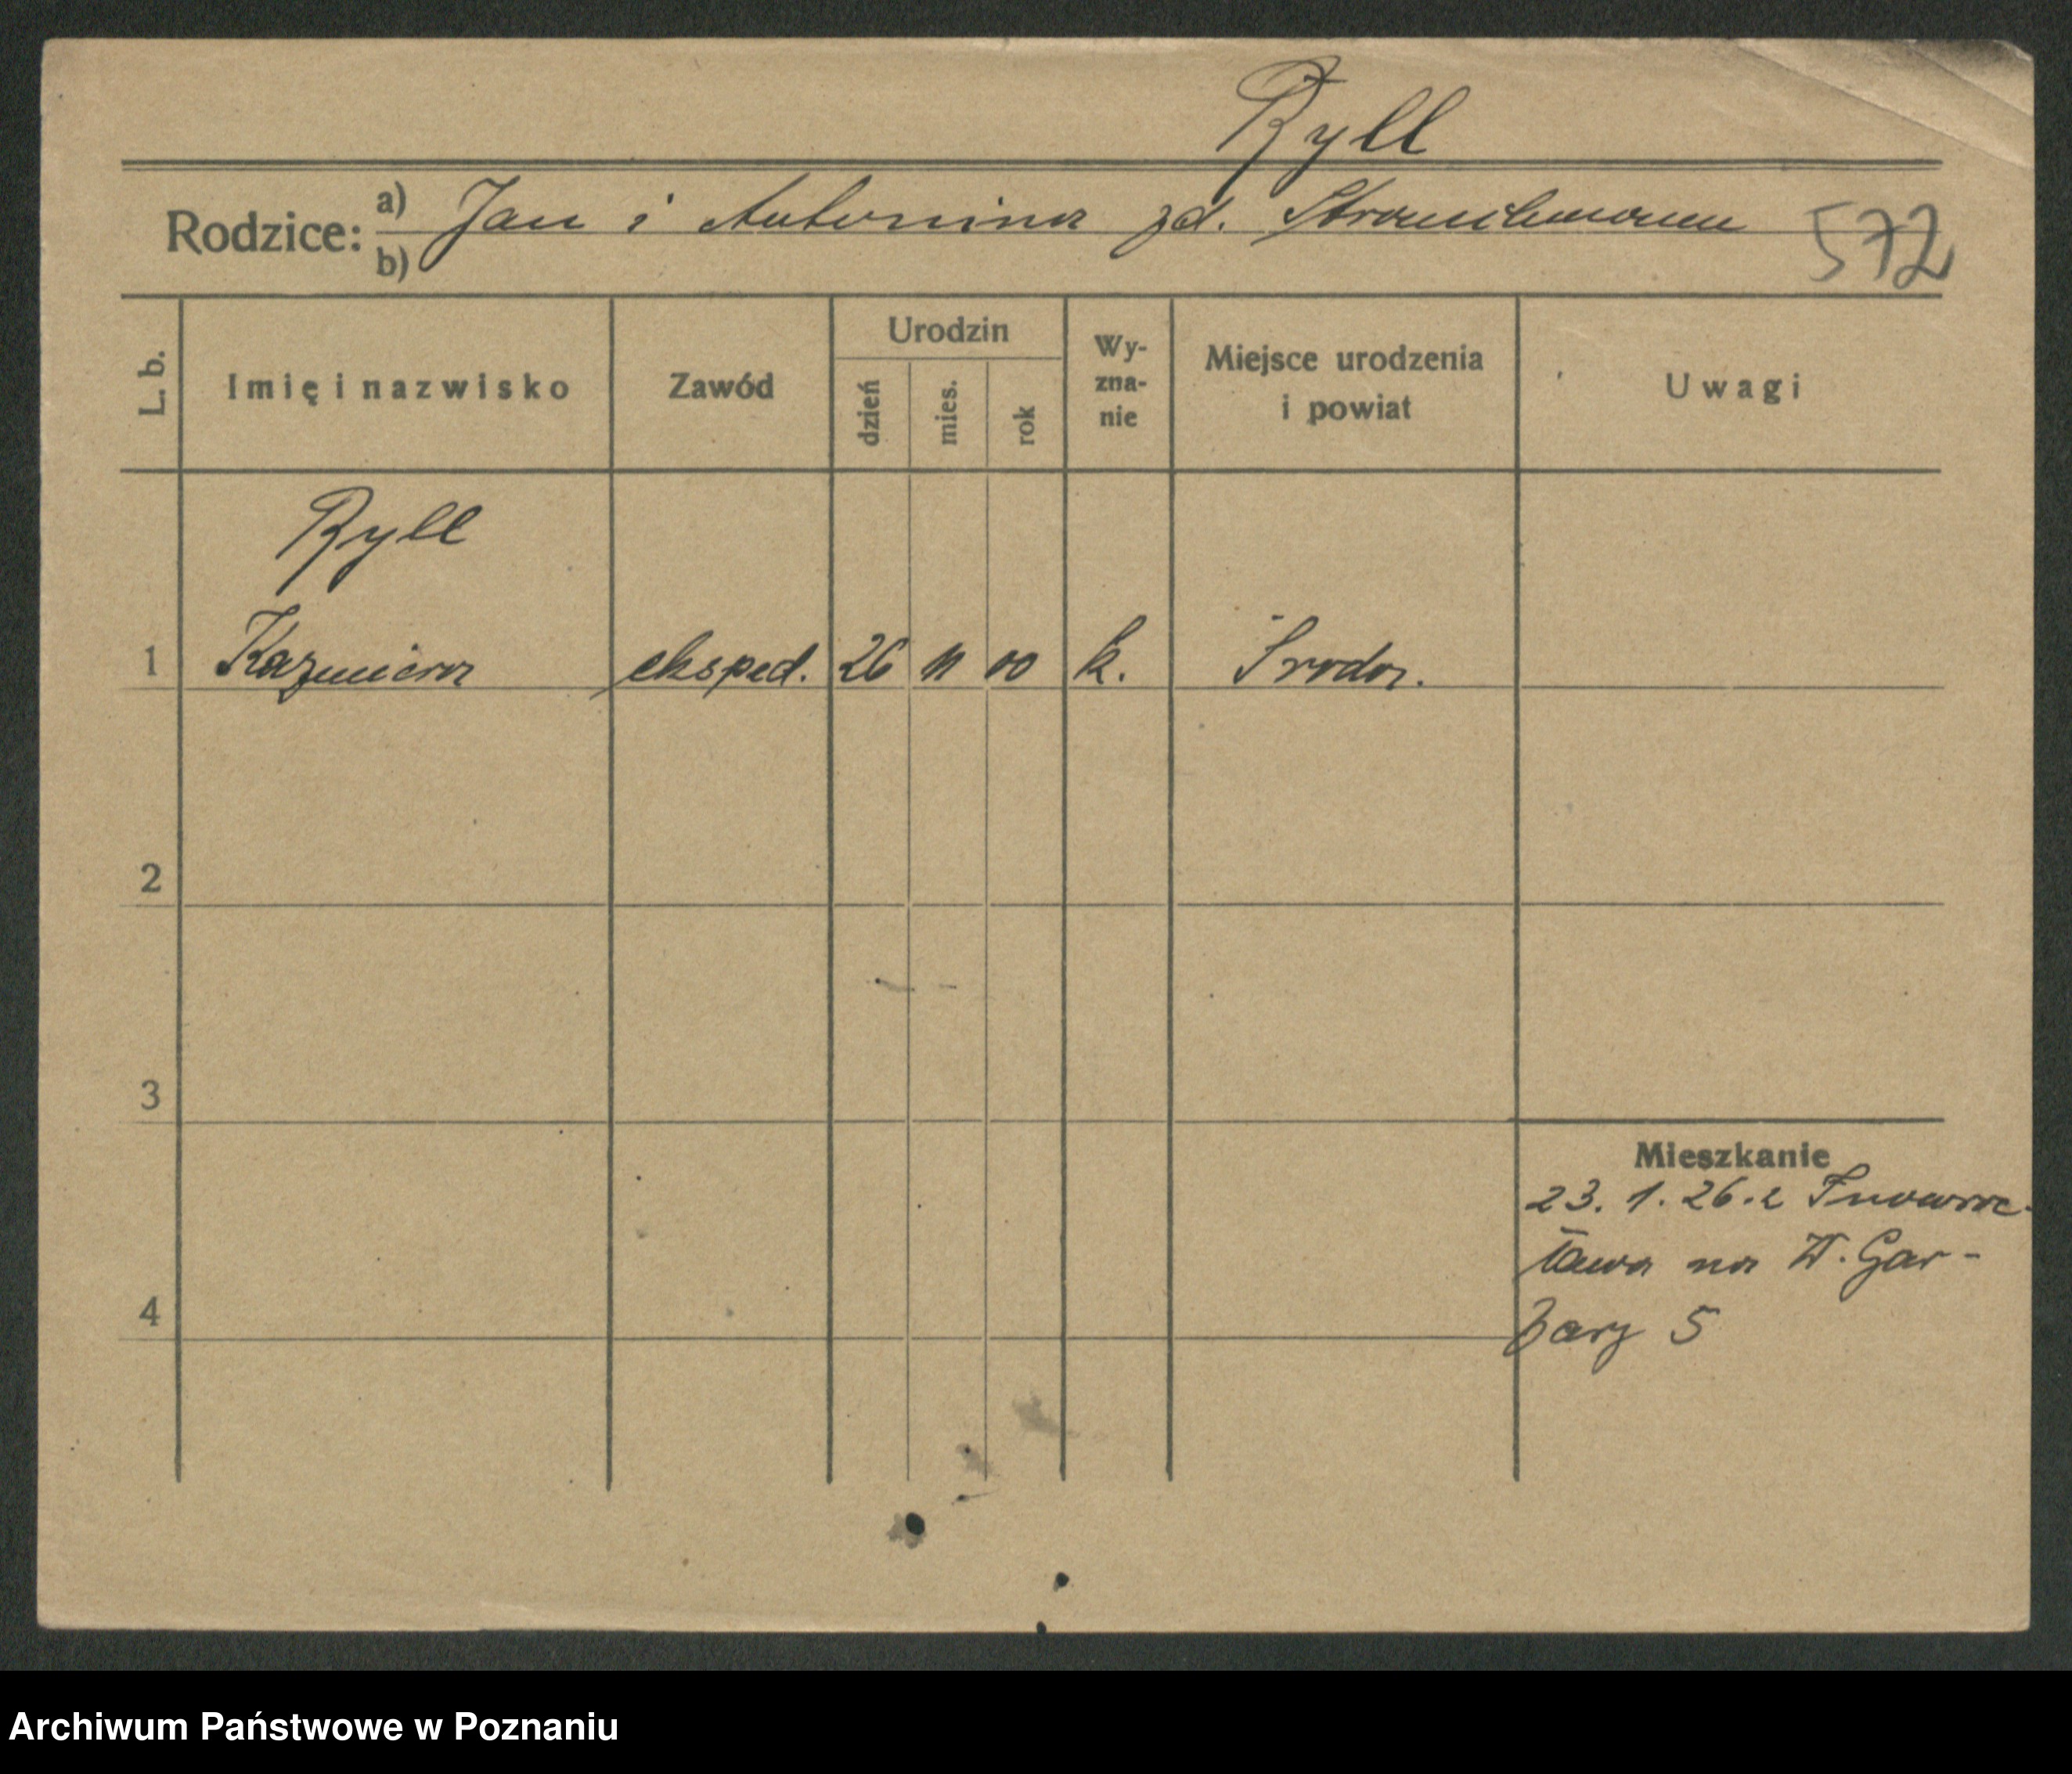 Ryll
Rodzice: a) Jan i Antonina zd.
b)
572
L. b.
Imię i nazwisko
Zawód
Urodzin
dzień
mies.
rok
Wy-
zna-
nie
Miejsce urodzenia
i powiat
Uwagi
Ryll
1 Kazmiera eksped. 26 11 00 k. Środa.
2
3
4
Mieszkanie
23. 1. 26. z Inowroc-
ława na W. Gar-
bary 5
Archiwum Państwowe w Poznaniu